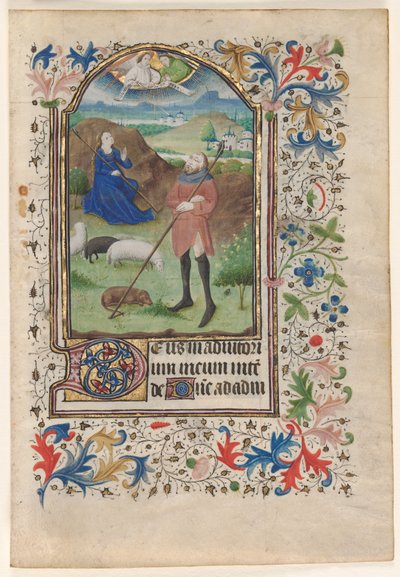 Deus in adiutori
um meum intē
de Dñe ad adiu